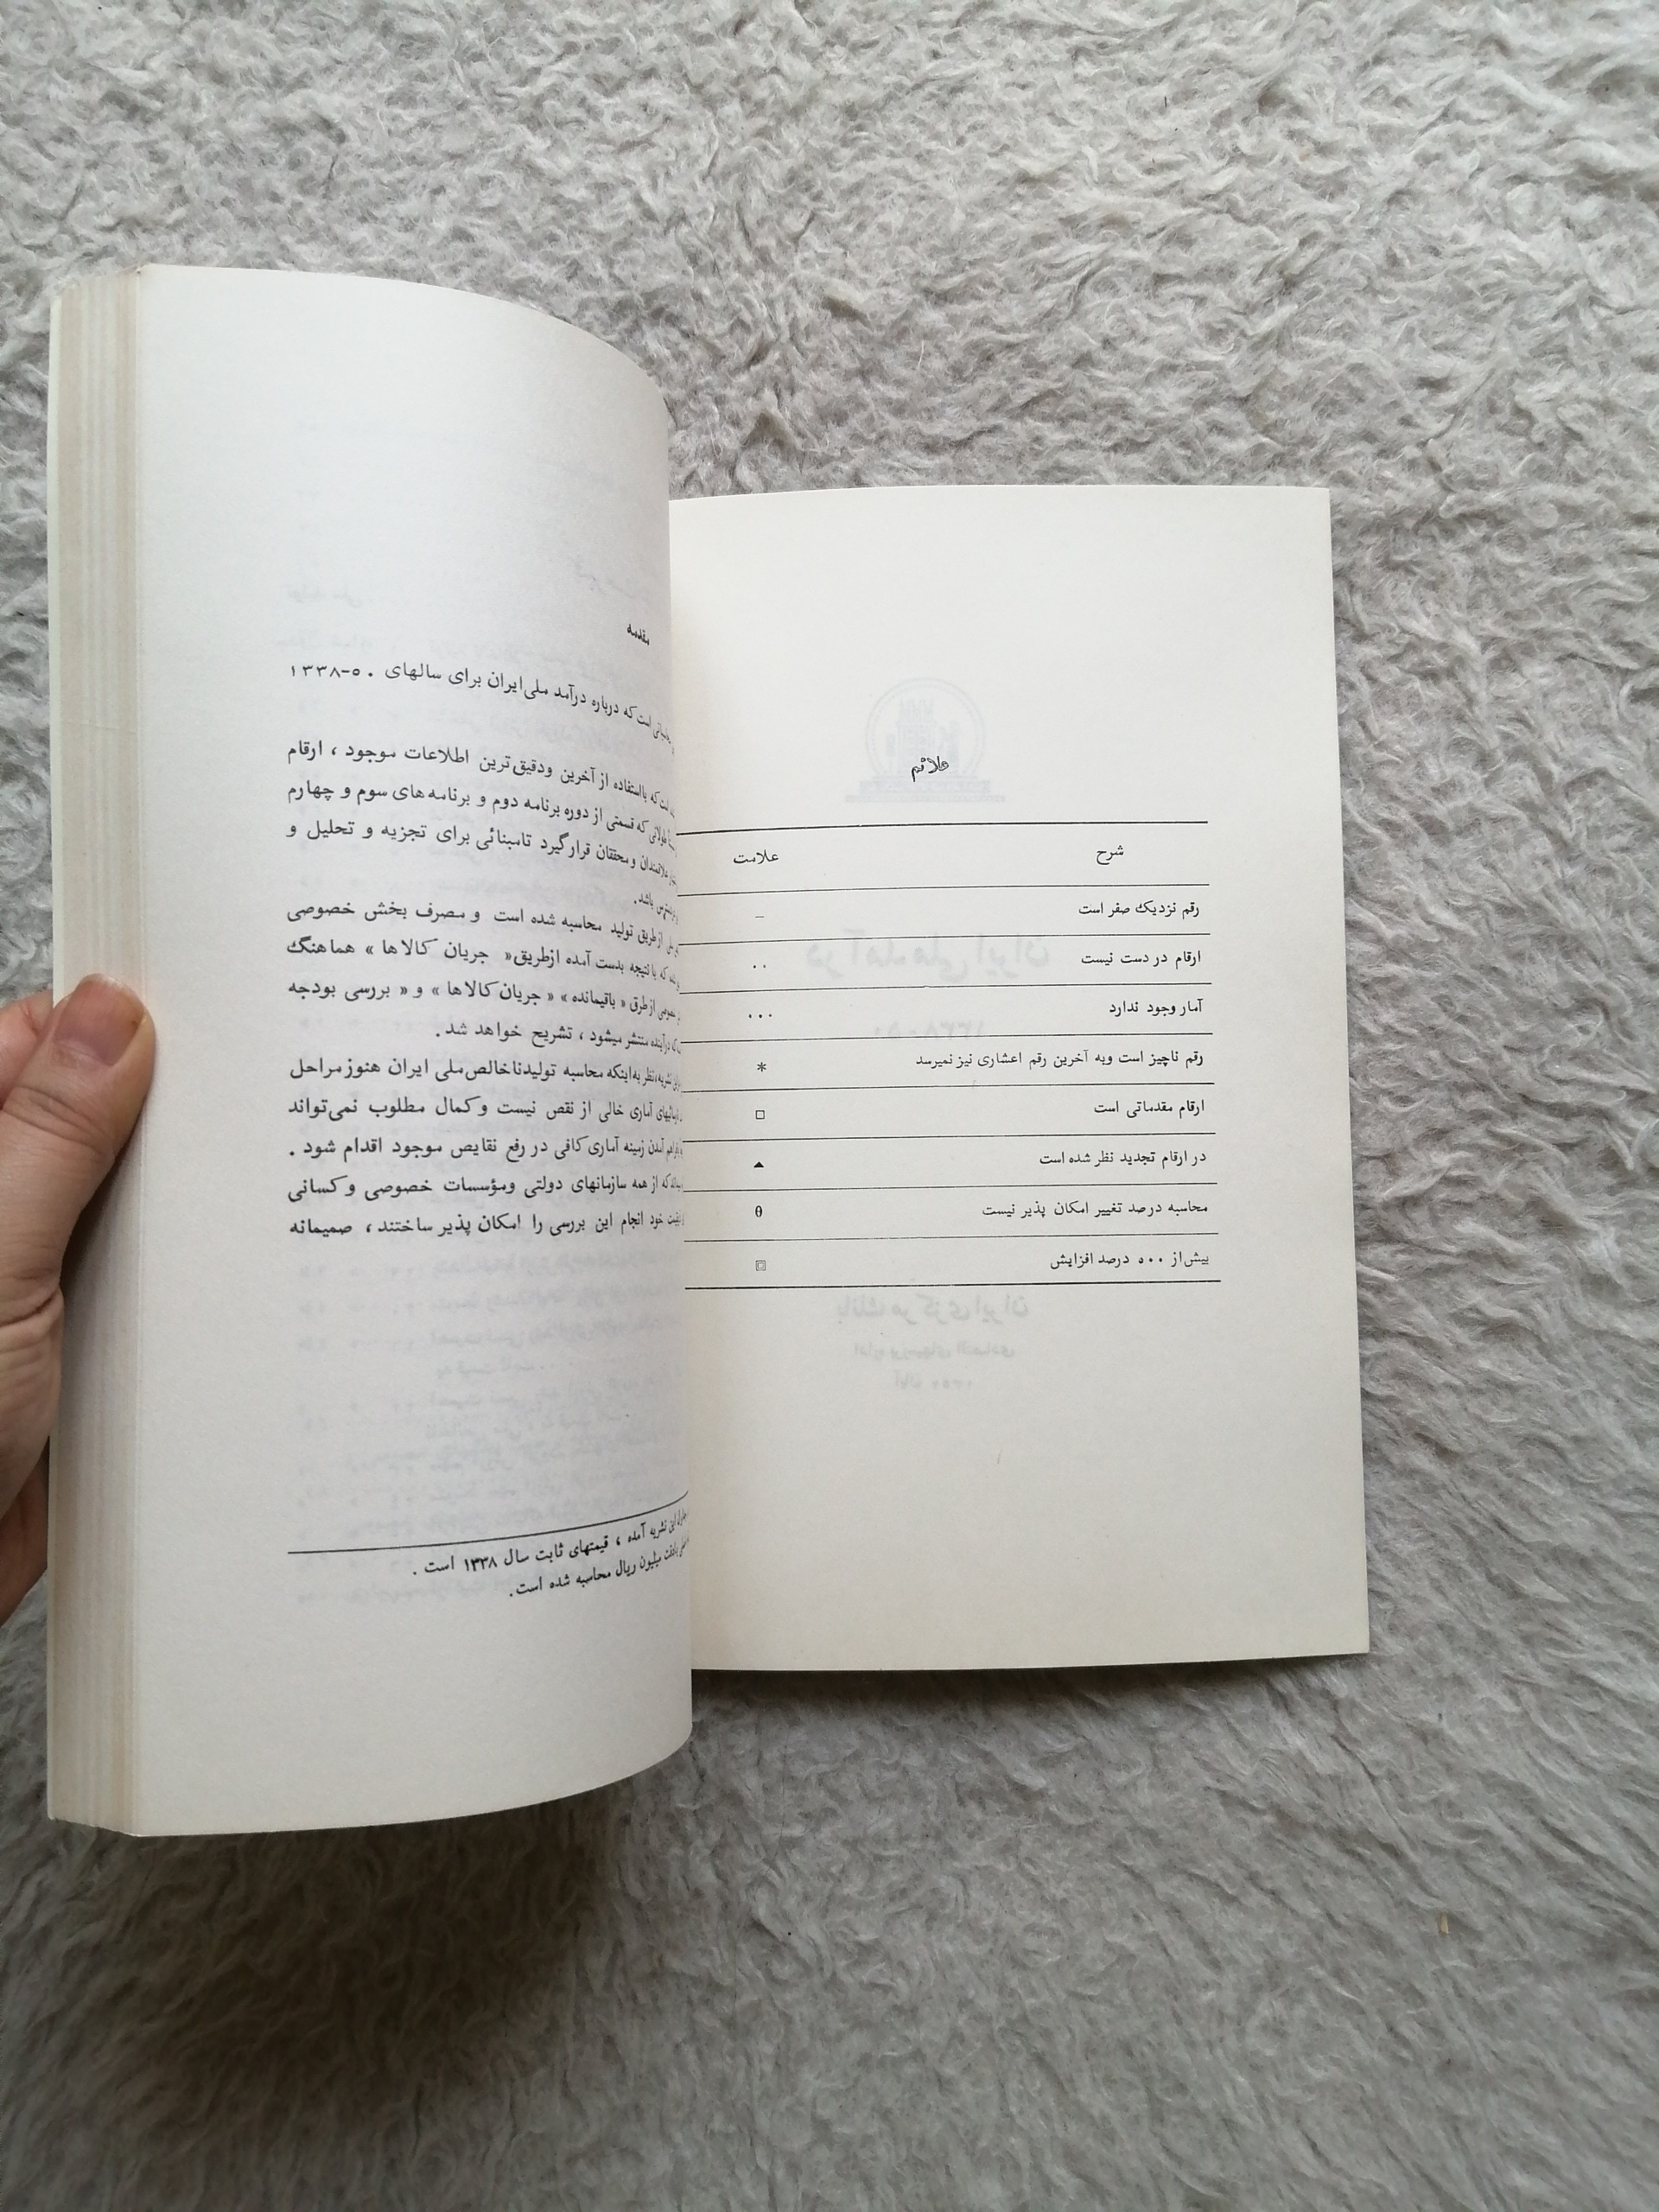 علائم
شرح علامت
رقم نزدیک صفر است –
ارقام در دست نیست ..
آمار وجود ندارد ...
رقم ناچیز است وبه آخرین رقم اعشاری نیز نمیرسد *
ارقام مقدماتی است □
در ارقام تجدید نظر شده است ▲
محاسبه درصد تغییر امکان پذیر نیست θ
بیش از ۵۰۰ درصد افزایش ▣
مقدمه
است که درباره درآمد ملی ایران برای سالهای ۱۳۳۸-۵۰
که بااستفاده از آخرین ودقیق‌ترین اطلاعات موجود ، ارقام
طولانی که قسمتی از دوره برنامه دوم و برنامه های سوم و چهارم
علاقمندان ومحققان قرارگیرد تامبنائی برای تجزیه و تحلیل و
باشد.
ازطریق تولید محاسبه شده است و مصرف بخش خصوصی
که بانتیجه بدست آمده ازطریق« جریان کالاها » هماهنگ
ازطرق « باقیمانده » « جریان کالاها » و « بررسی بودجه
که درآینده منتشر میشود ، تشریح خواهد شد .
نشریه، نظر به‌اینکه محاسبه تولیدناخالص‌ملی ایران هنوز مراحل
آماری خالی از نقص نیست وکمال مطلوب نمی‌تواند
آمدن زمینه آماری کافی در رفع نقایص موجود اقدام شود .
که از همه سازمانهای دولتی ومؤسسات خصوصی وکسانی
خود انجام این بررسی را امکان پذیر ساختند ، صمیمانه
این نشریه آمده ، قیمتهای ثابت سال ۱۳۳۸ است .
میلیون ریال محاسبه شده است.